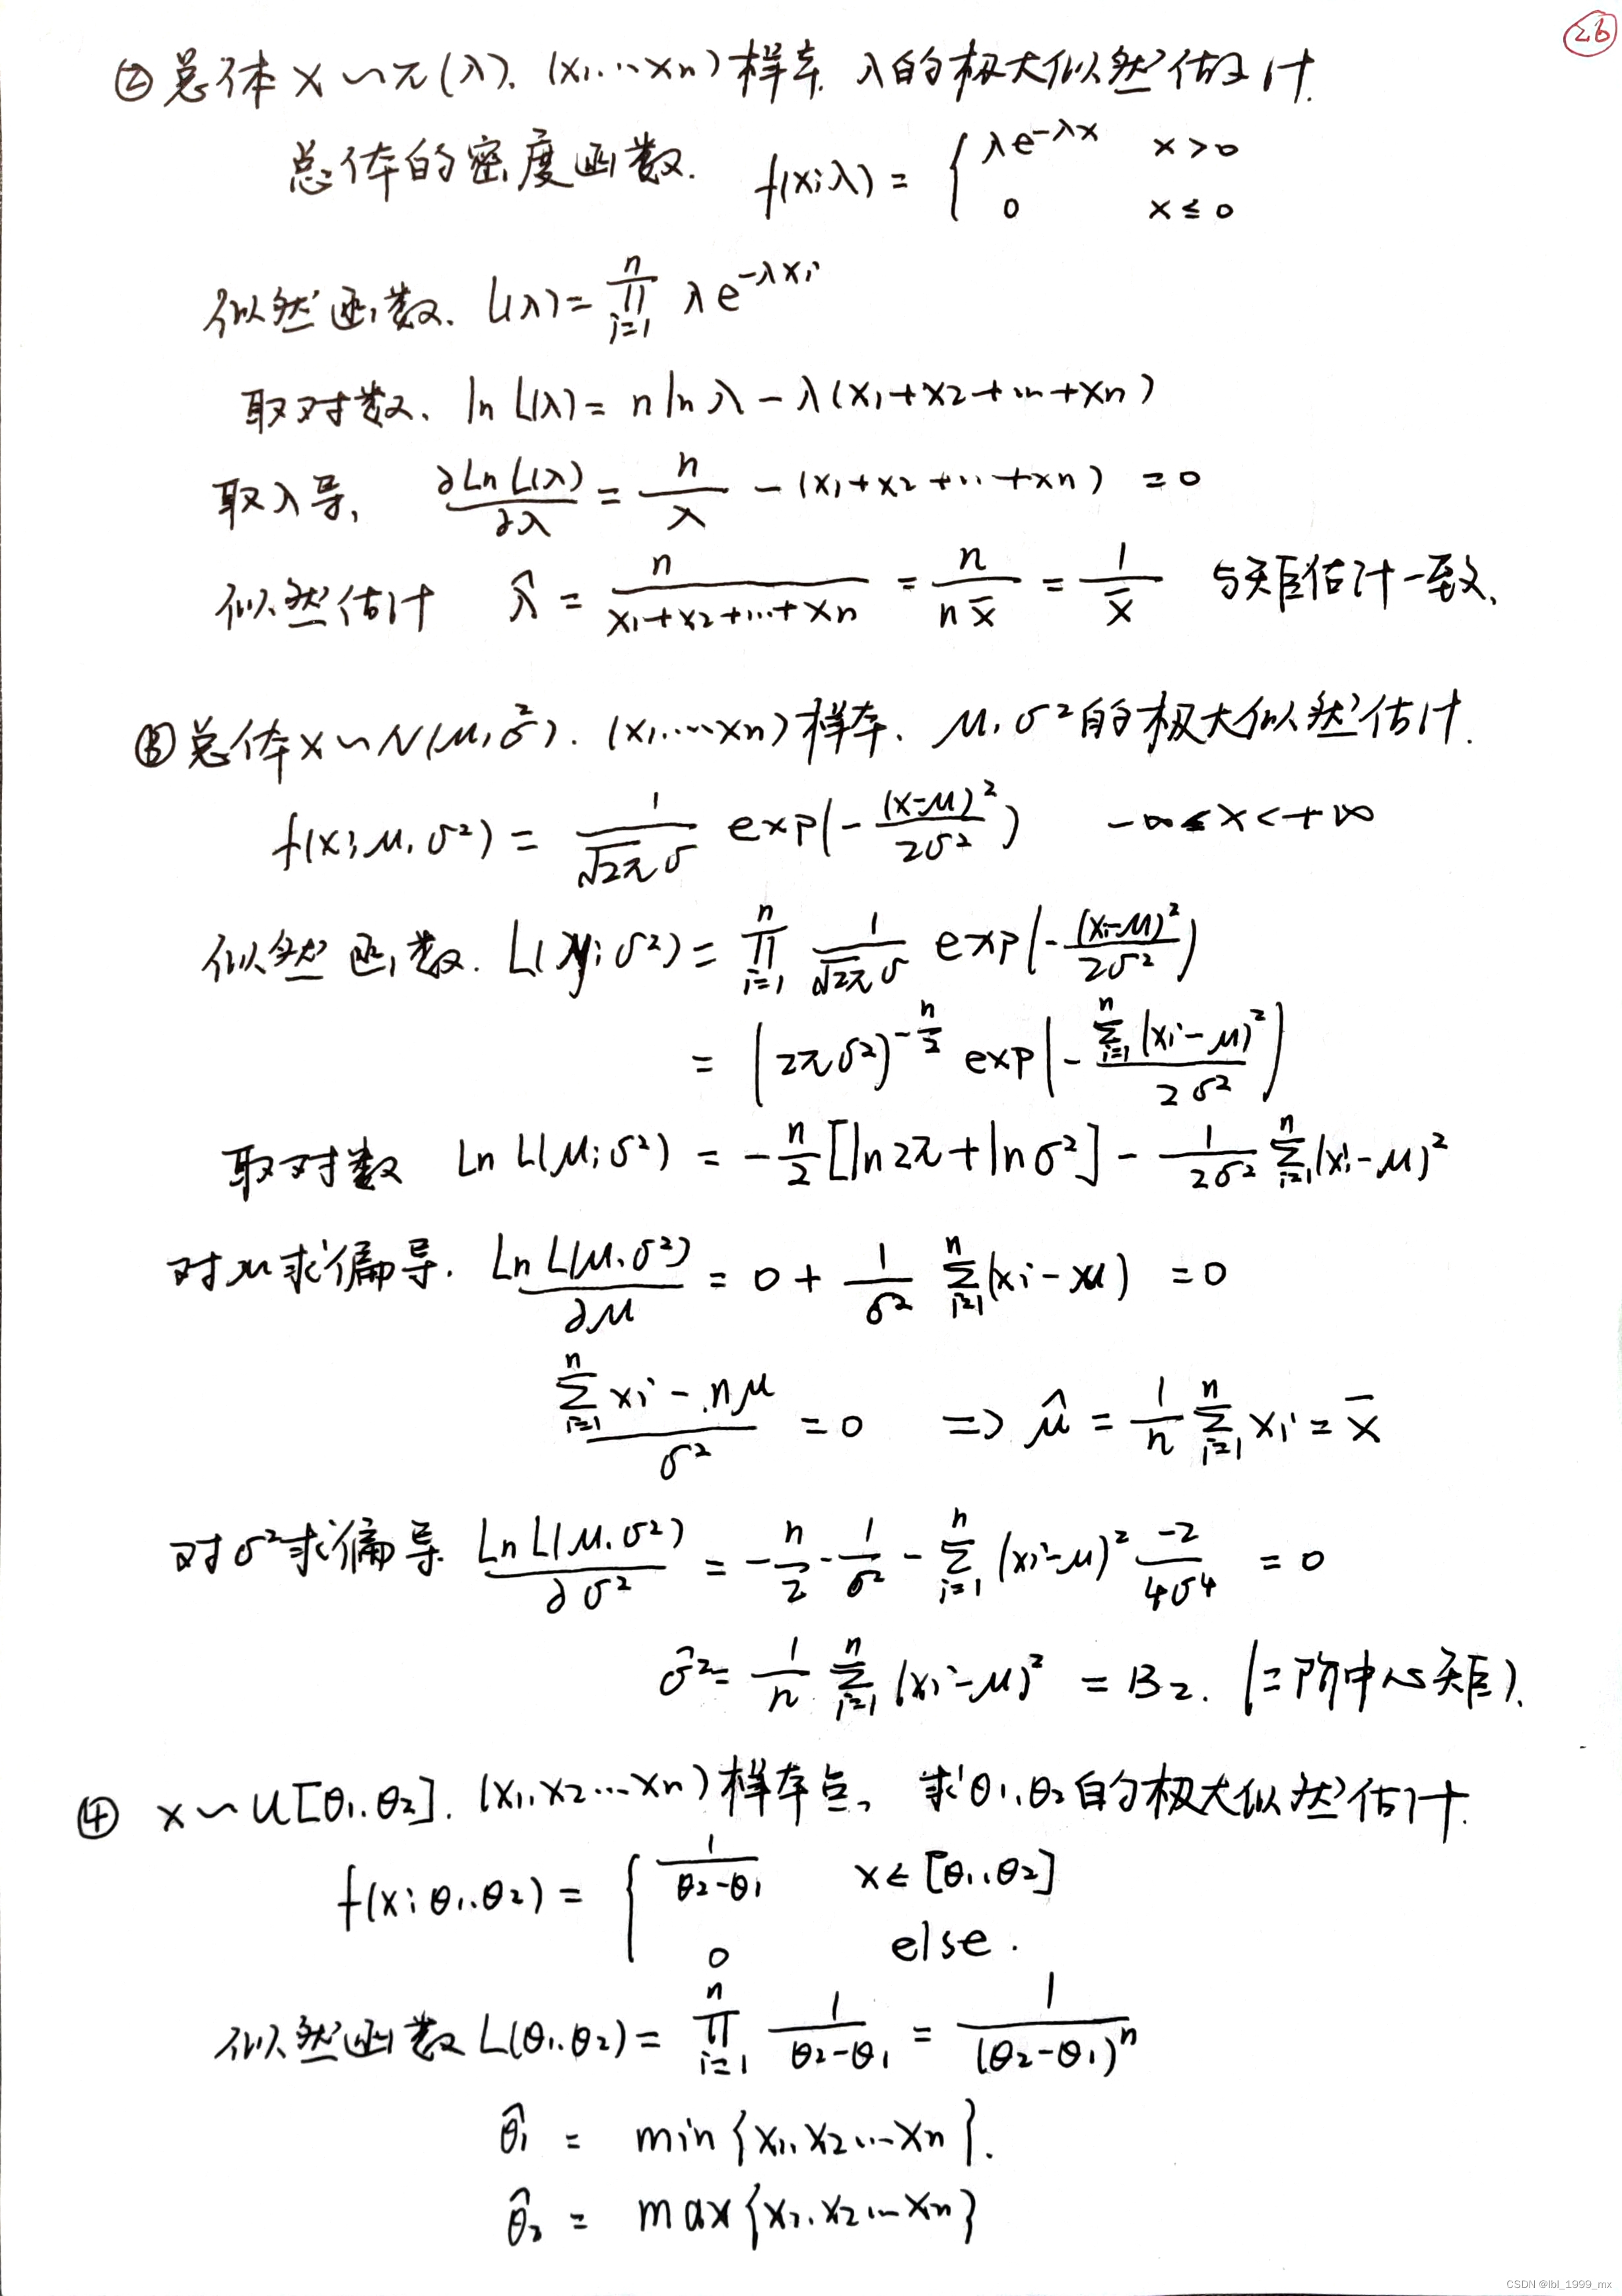 26
② 总体 X ~ π(λ). (x₁...xₙ) 样本. λ的极大似然估计.
总体的密度函数. f(x;λ) = { λe^{-λx} x>0
0 x≤0
似然函数. L(λ) = ∏_{i=1}^{n} λe^{-λxi}
取对数. ln L(λ) = n ln λ - λ(x₁+x₂+...+xₙ)
取λ导, ∂Ln L(λ)/∂λ = n/λ - (x₁+x₂+...+xₙ) = 0
似然估计 λ̂ = n/(x₁+x₂+...+xₙ) = n/(n x̄) = 1/x̄ 与矩估计一致.
③ 总体 X ~ N(μ, σ²). (x₁,...xₙ) 样本. μ, σ²的极大似然估计.
f(x; μ, σ²) = 1/(√2π σ) exp(-(x-μ)²/2σ²) -∞<x<+∞
似然函数. L(μ; σ²) = ∏_{i=1}^{n} 1/(√2π σ) exp(-(xi-μ)²/2σ²)
= (2πσ²)^{-n/2} exp(-∑_{i=1}^{n}(xi-μ)²/2σ²)
取对数 Ln L(μ; σ²) = -n/2 [ln2π + lnσ²] - 1/2σ² ∑_{i=1}^{n}(xi-μ)²
对μ求偏导. Ln L(μ, σ²)/∂μ = 0 + 1/σ² ∑_{i=1}^{n}(xi-μ) = 0
(∑_{i=1}^{n} xi - nμ)/σ² = 0 => μ̂ = 1/n ∑_{i=1}^{n} xi = x̄
对σ²求偏导. Ln L(μ, σ²)/∂σ² = -n/2 · 1/σ² - ∑_{i=1}^{n}(xi-μ)² -2/4σ⁴ = 0
σ̂² = 1/n ∑_{i=1}^{n}(xi-μ)² = B₂. (二阶中心矩).
④ X ~ U[θ₁, θ₂]. (x₁, x₂...xₙ) 样本点, 求θ₁, θ₂的极大似然估计.
f(x; θ₁, θ₂) = { 1/(θ₂-θ₁) x∈[θ₁, θ₂]
0 else.
似然函数 L(θ₁, θ₂) = ∏_{i=1}^{n} 1/(θ₂-θ₁) = 1/(θ₂-θ₁)ⁿ
θ̂₁ = min{x₁, x₂...xₙ}.
θ̂₂ = max{x₁, x₂...xₙ}
CSDN @lbl_1999_mx